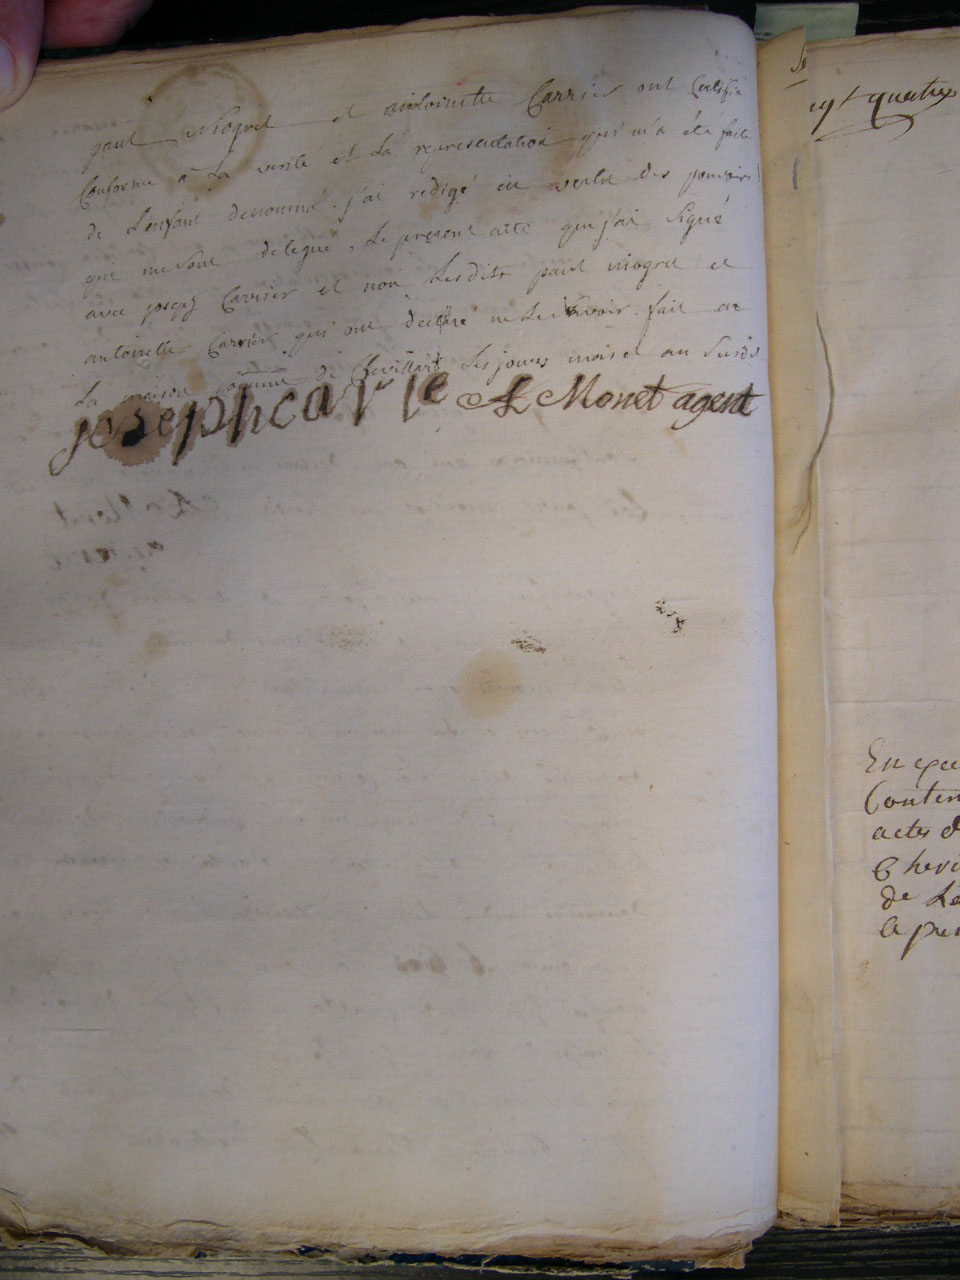 paul Niogret et antoinette Carrier ont Certifié
Conforme a La verité et La representation qui m'a été faite
de L'enfant denommé. j'ai redigé en vertu des pouvoirs
qui me sont delegué. Le present acte que j'ai Signé
avec joseph Carrier et non Lesdits paul niogret et
antoinette Carrier qui ont declaré ne Le Savoir. fait en
La maison commune de Chevillard Les jours mois et an Susdit
joseph carrie A Monet agent
quatre
En exe
Conten
actes d
Chevi
de La